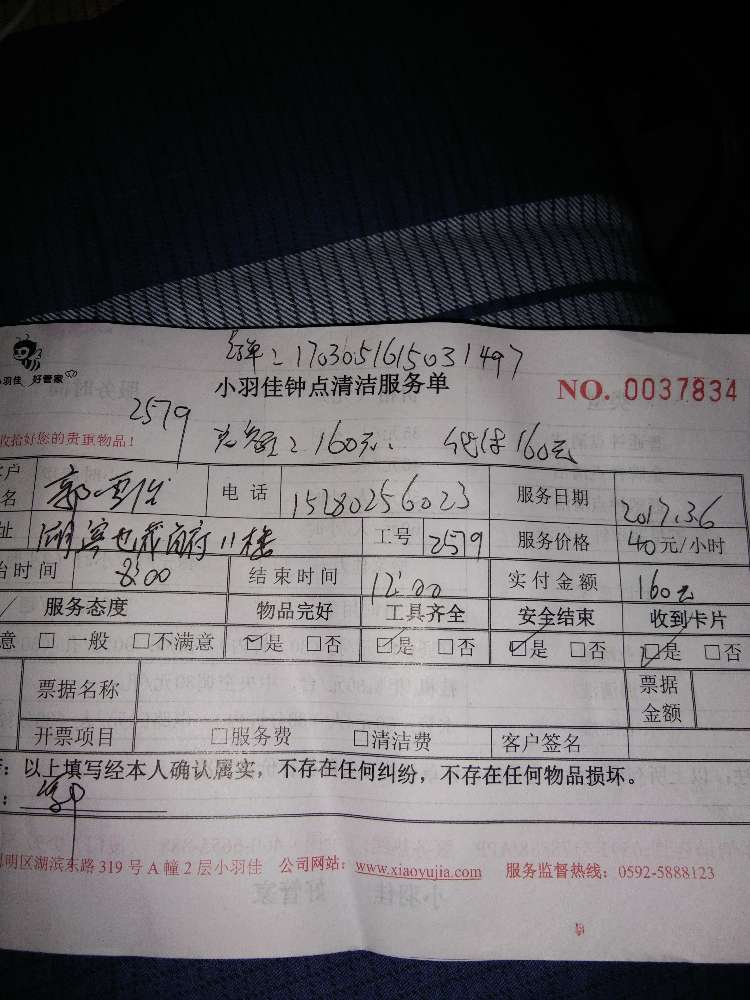 1703051615031497
小羽佳 好管家
小羽佳钟点清洁服务单
NO. 0037834
2579
收拾好您的贵重物品！
160元 160元
客户
名 郭 电 话 15280256023 服务日期 2017.3.6
址 湖宾 府11楼 工号 2579 服务价格 40元/小时
台时间 8:00 结束时间 12:00 实付金额 160元
服务态度 物品完好 工具齐全 安全结束 收到卡片
意 □ 一般 □不满意 ☑是 □否 ☑是 □否 ☑是 □否 ☑是 □否
票据名称 票据
金额
开票项目 □服务费 □清洁费 客户签名
：以上填写经本人确认属实，不存在任何纠纷，不存在任何物品损坏。
：
明区湖滨东路 319 号 A 幢 2 层小羽佳 公司网站：www.xiaoyujia.com 服务监督热线：0592-5888123